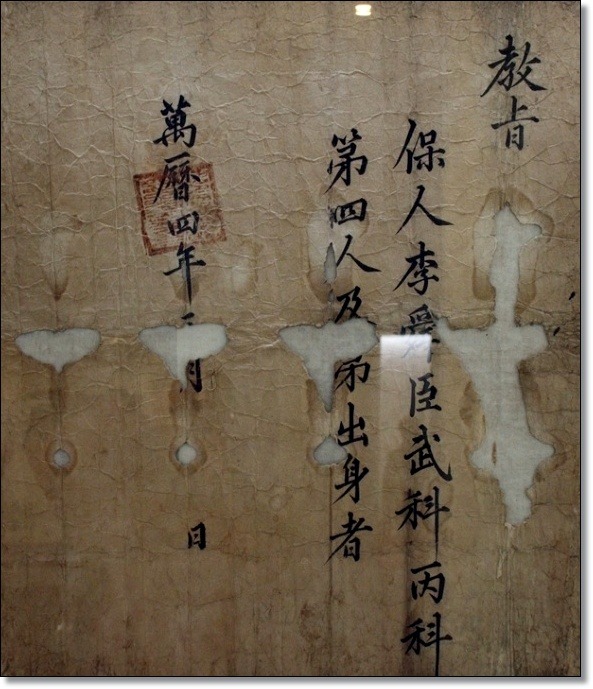 教旨
保人李舜臣武科丙科
第四人及第出身者
萬曆四年月 日